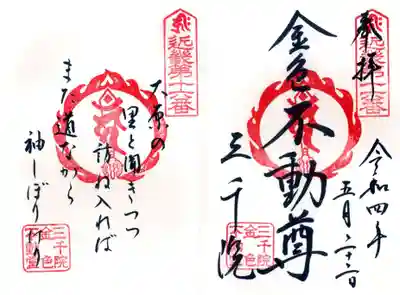 奉拝
近畿第十六番
令和四年
五月二十二日
金色不動尊
三千院
三千院
金色
不動堂
近畿第十六番
大原の
里と聞きつつ
訪ね入れば
まだ道なから
袖しぼりけり
三千院
金色
不動堂